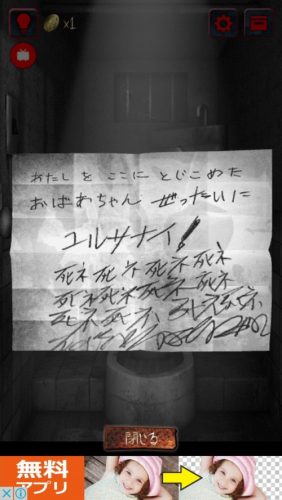 ×1
わたしを ここに とじこめた
おばあちゃん ぜったいに
ユルサナイ!
死ネ死ネ死ネ死ネ
死ネ死ネ死ネ死ネ
死ネ死ネ
閉じる
無料
アプリ